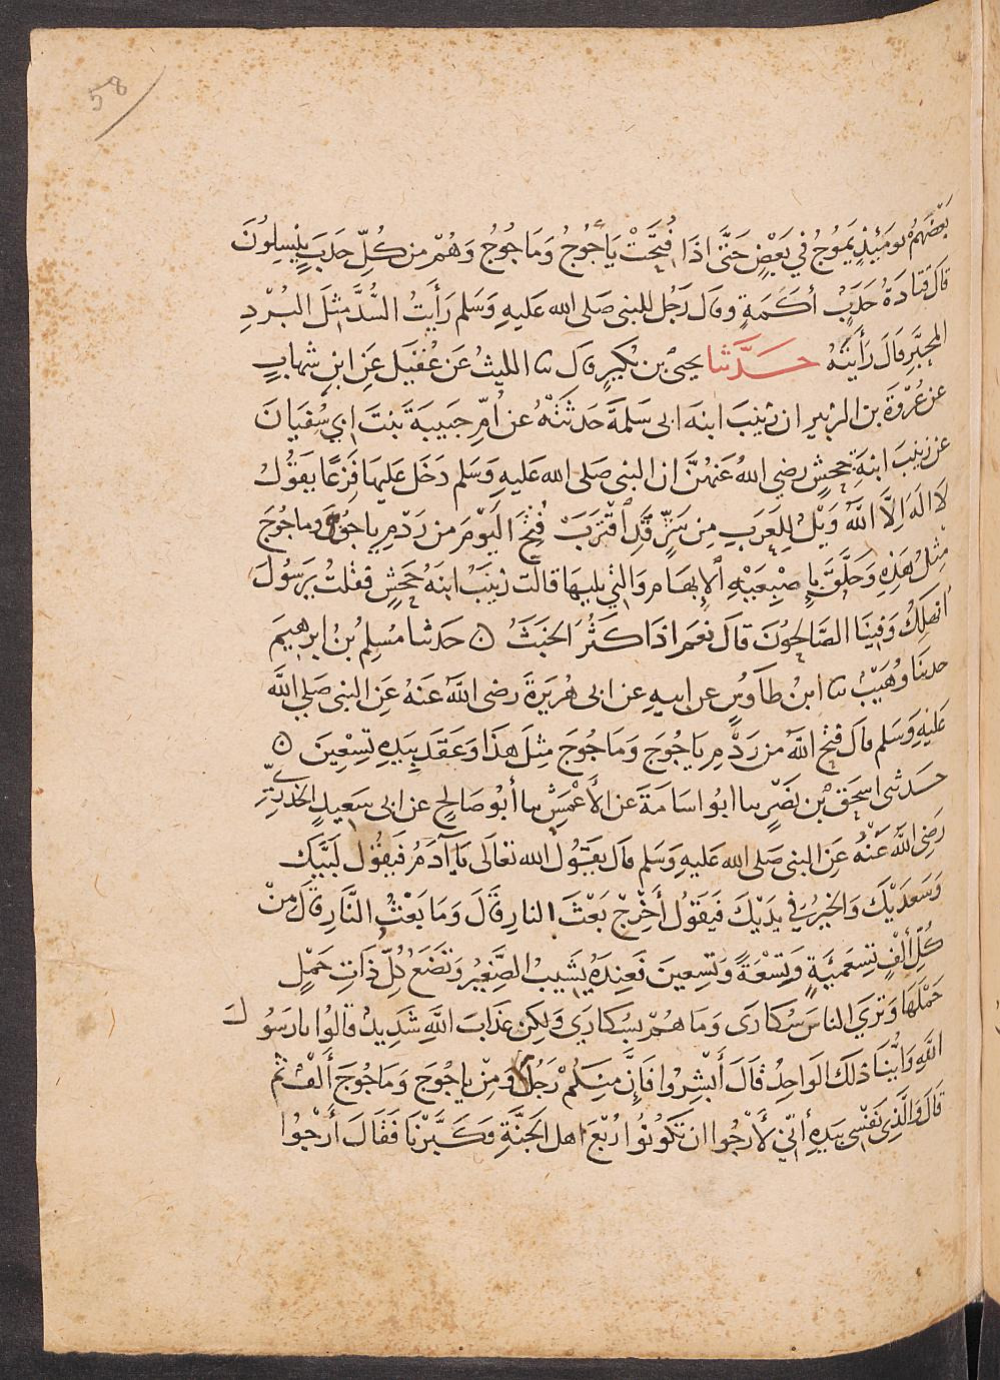 58
بَعْضَهُمْ يومَئِذٍ يَمُوجُ فِي بَعْضٍ حَتَّى اذَا فُتِحَتْ يَأجُوجُ وَمَاجُوجُ وَهُمْ مِن كُلِّ حَدَبٍ يَنْسِلُونَ
قَالَ قَتَادَةُ حَدَبٍ أَكَمَةٍ وقال رَجُل للنبى صَلى الله عَليهِ وَسَلم رَأَيتُ السُّدَّ مِثلَ البُرْدِ
المحَبَّرِ قَالَ رَأَيتَهُ حَدَّثنا يحيى بن بُكَيرٍ قال ثنا الليثُ عَن عُقَيل عَنِ ابنِ شهابٍ
عَن عُرْوَةَ بن الزبيرِ ان زينبَ ابنةَ ابى سَلمَة حَدثَتهُ عن أُمِّ حَبيبَةَ بَنتَ ابي سُفيَانَ
عَن زينبَ ابنَةِ جَحشٍ رضي اللهُ عَنهُنَّ ان النبى صَلى الله عَليهِ وَسَلم دَخَل عَليها فَزِعًا يَقُولُ
لَا الهَ الَّا اللهُ وَيْلٌ لِلعَرَبِ مِن شَرٍّ قَدِ اقْتَرَبَ فُتِحَ اليَوْمَ من رَدْمِ ياجُوجَ وماجُوجَ
مِثلُ هَذِهِ وَحَلَّقَ بِإِصْبعَيْهِ الإِبهَامِ وَالتي يليها قالت زينَبُ ابنَهُ جَحشٍ فقلتُ يرَسُولَ
أَنهلِكُ وَفِينَا الصَّالحُونَ قالَ نعَم اذَا كَثُرَ الخَبَثُ ن حَدثنا مُسلِمُ بنُ ابرهيمَ
حدثنَا وُهَيْبٌ ثنا ابنُ طَاوسٍ عن ابيهِ عن ابى هُرَيرَةَ رضى اللهُ عَنهُ عَنِ النبى صَلي اللهُ
عَليَهِ وَسَلم قال فتحَ اللهُ من رَدْمِ ياجُوجَ وَمَاجُوجَ مِثلَ هَذا وَعَقَدَ بِيَدِهِ تِسْعِينَ ن
حَدثنى اسحَق بْن نَصْرٍ ثنا ابو اسَامَةَ عَن الأعْمَشِ ثنا أبُو صَالحٍ عن ابى سَعيدٍ الخدرِيِّ
رَضِى اللهُ عَنْهُ عَنِ النبى صَلى الله عَليهِ وَسَلم قال يقُولُ الله تعَالَى يَا آدَمُ فَيقُولُ لَبَّيكَ
وَسَعدَيْكَ وَالخيرُ فِي يَدَيْكَ فَيَقوُل أَخْرِجْ بَعْثَ النارِ قَالَ وَمَا بَعْثُ النَّارِ قالَ مِنْ
كُلِّ أَلْفٍ تِسعَمِيَةٍ وَتِسْعَةً وَتِسعِينَ فَعِندَهُ يَشيبُ الصَّغِيرُ وَتَضَعُ كُلُّ ذَاتِ حَمْلٍ
حَمْلَهَا وَتَري الناسَ سُكَارَى وَمَا هُمْ بِسُكارَي وَلكِن عَذَابَ اللَّهِ شَدِيد قالُوا يا رَسُولَ
اللهِ وَايُّنَا ذلك الوَاحِدُ قَالَ أَبْشِرُوا فَإنَّ مِنكُمْ رَجُلٌ وَمِنْ ياجُوجَ وَمَاجُوجَ ألفٌ ثم
قالَ وَالَّذِي نَفْسِى بِيَدِهِ أنّي لأَرْجُوا ان تَكُونُوا رُبْعَ اهل الجَنَّةِ فَكَبَّرْنَا فَقَالَ أَرْجُوا